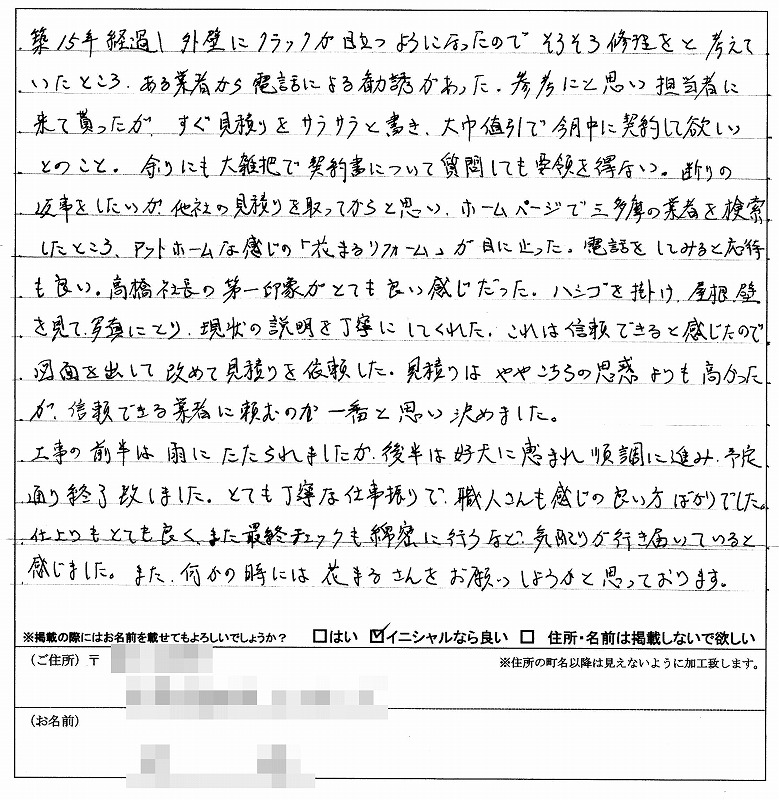 築15年経過し外壁にクラックが目立つようになったのでそろそろ修理をと考えて
いたところ、ある業者から電話による勧誘があった。参考にと思い担当者に
来て貰ったが、すぐ見積りをサラサラと書き、大巾値引で今月中に契約して欲しい
とのこと。余りにも大雑把で契約書について質問しても要領を得ない。断りの
返事をしたいが、他社の見積りを取ってからと思い、ホームページで三多摩の業者を検索
したところ、アットホームな感じの「花まるリフォーム」が目に止った。電話をしてみると応待
も良い。高橋社長の第一印象がとても良い感じだった。ハシゴを掛け、屋根、壁
を見て、写真にとり、現状の説明を丁寧にしてくれた。これは信頼できると感じたので
図面を出して改めて見積りを依頼した。見積りはややこちらの思惑よりも高かった
が、信頼できる業者に頼むのが一番と思い決めました。
工事の前半は雨にたたられましたが、後半は好天に恵まれ順調に進み、予定
通り終了致しました。とても丁寧な仕事振りで、職人さんも感じの良い方ばかりでした。
仕上りもとても良く、また最終チェックも綿密に行うなど、気配りが行き届いていると
感じました。また、何かの時には花まるさんをお願いしようかと思っております。
※掲載の際にはお名前を載せてもよろしいでしょうか？ □はい ☑イニシャルなら良い □ 住所・名前は掲載しないで欲しい
（ご住所）〒 ※住所の町名以降は見えないように加工致します。
（お名前）